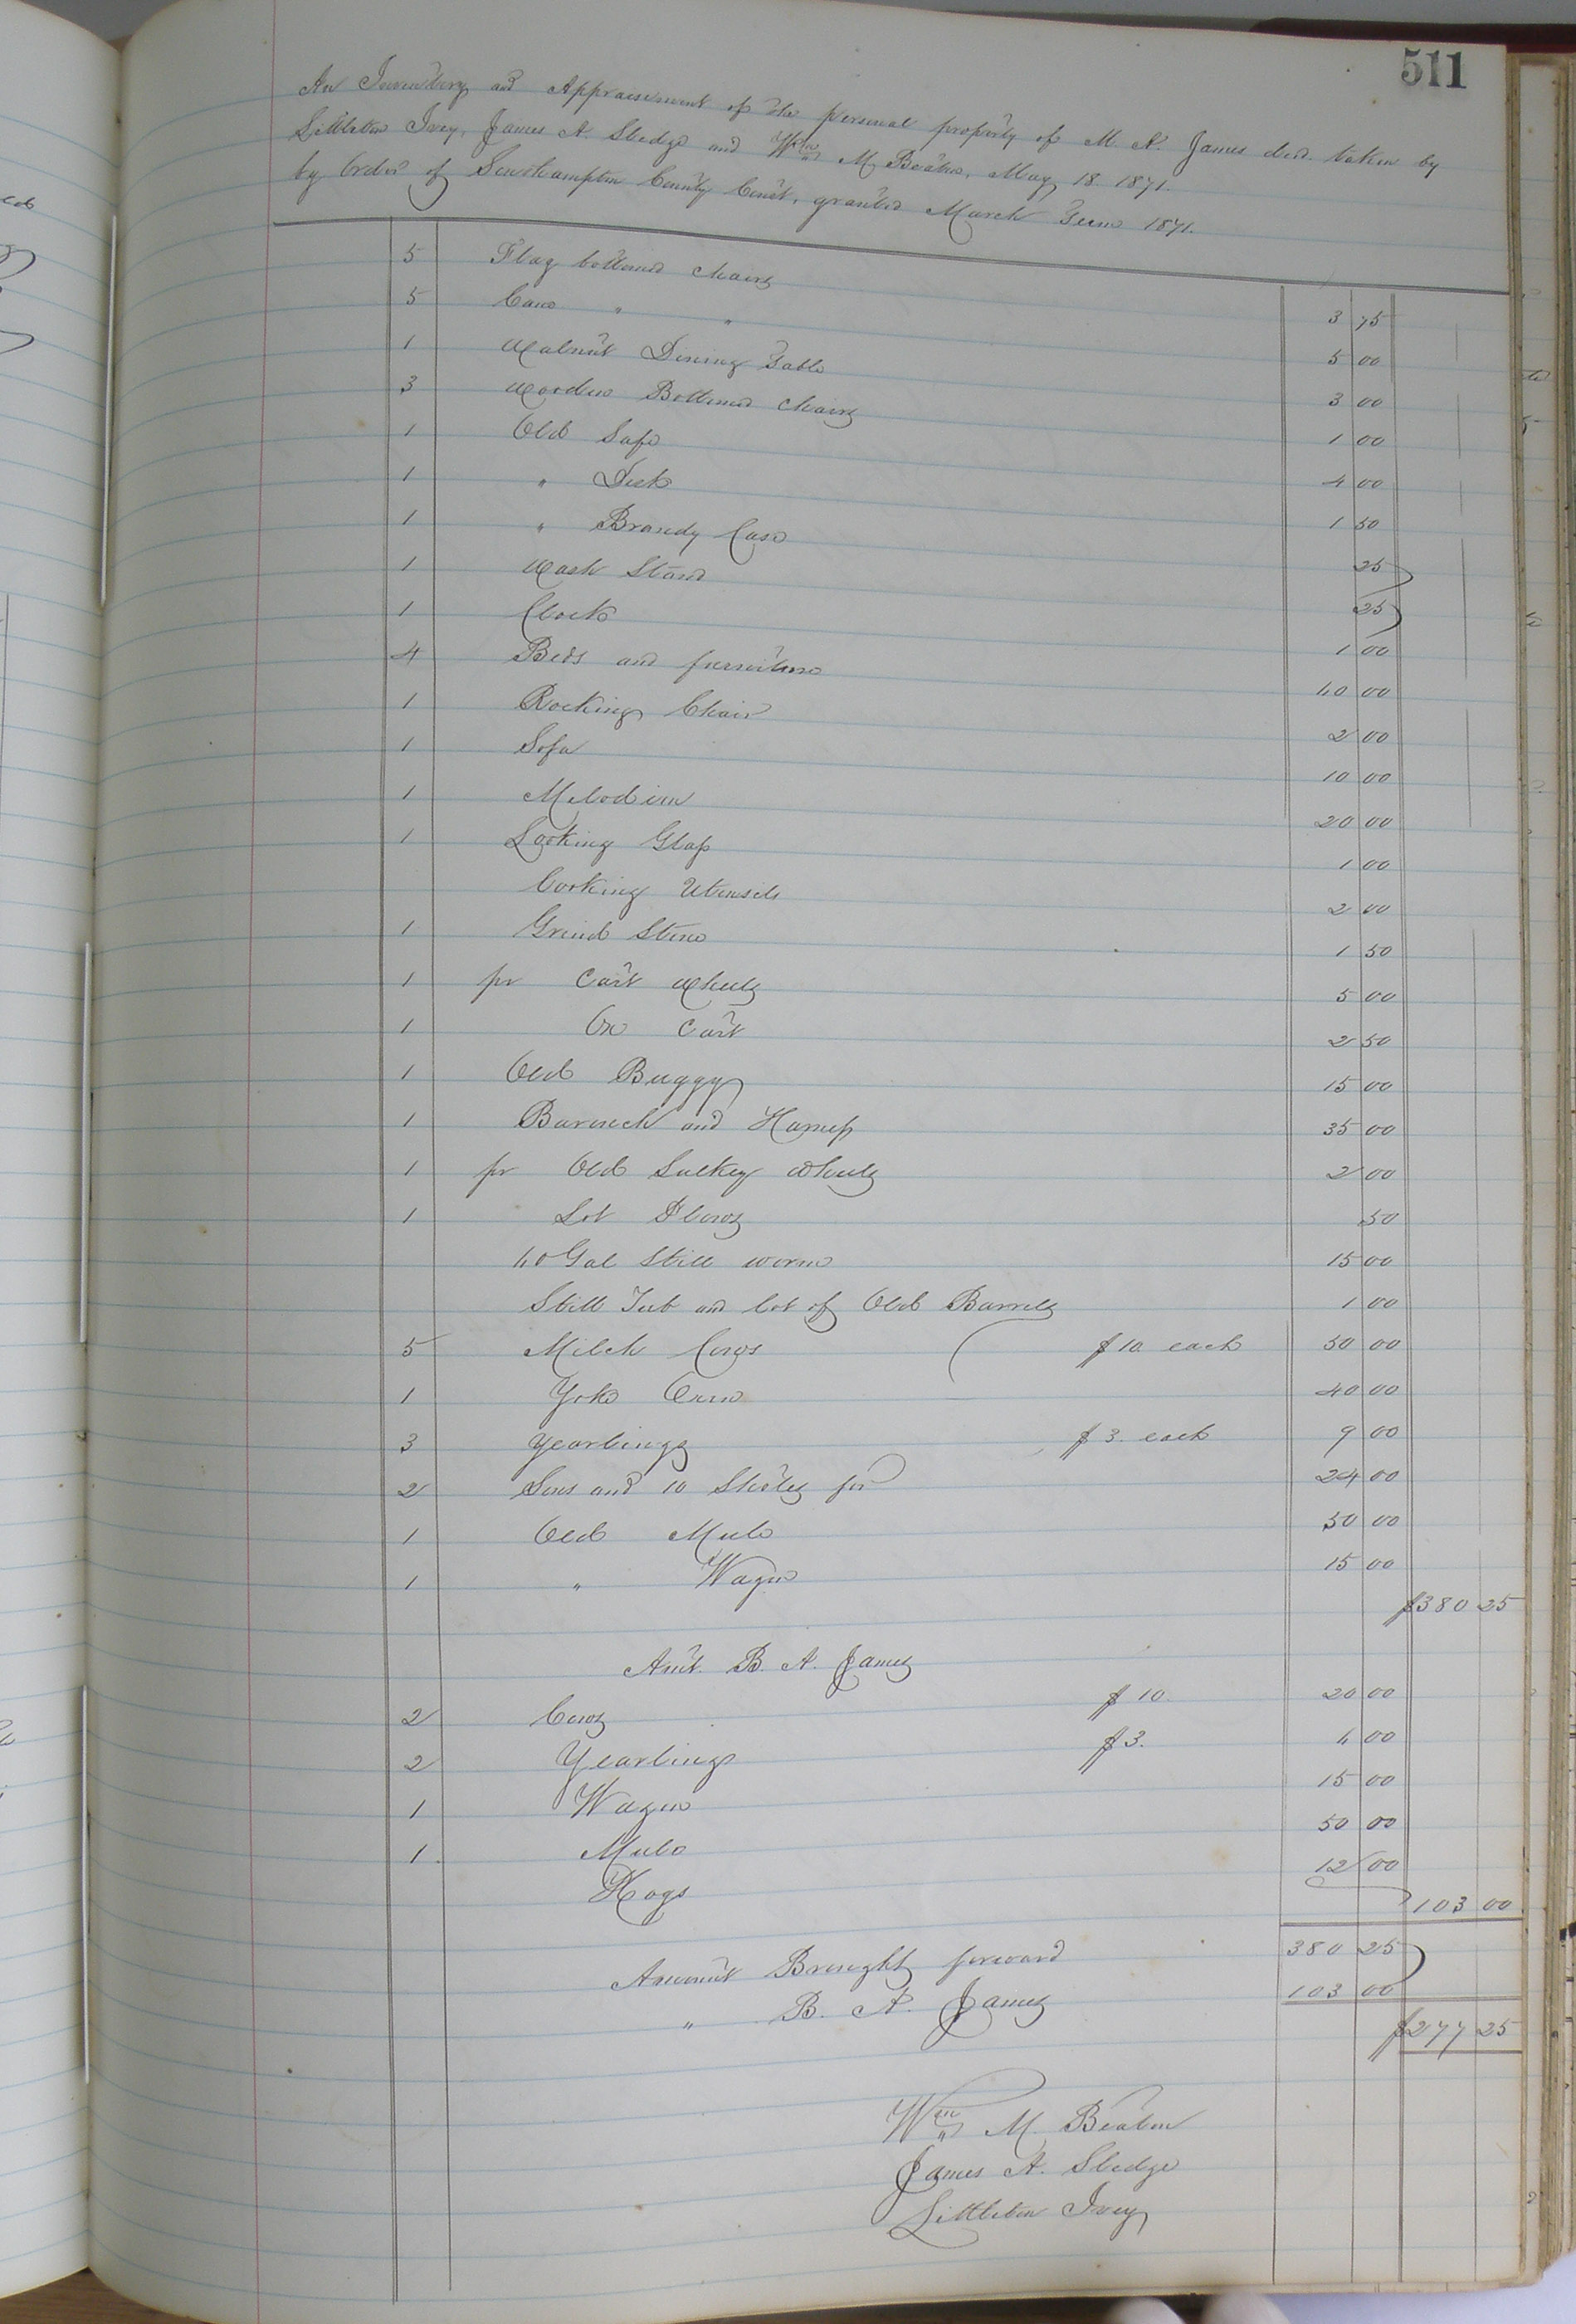 511
An Inventory and Appraisement of the personal property of M. A. James decd. taken by
Littleton Ivey, James A. Sledge and Wm M. Beaton, May 18 1871.
by Order of Southampton County Court, granted March Term 1871.
5 Flag bottomed chairs 3 75
5 Cane " " 5 00
1 Walnut Dining Table 3 00
3 Wooden Bottomed Chairs 1 00
1 Old Safe 4 00
1 " Desk 1 50
1 " Brandy Case 25
1 Wash Stand 25
1 Clock 1 00
4 Beds and furniture 40 00
1 Rocking Chair 2 00
1 Sofa 10 00
1 Melodian 20 00
1 Looking Glass 1 00
Cooking Utensils 2 00
1 Grind Stone 1 50
1 pr Cart Wheels 5 00
1 Ox Cart 2 50
1 Old Buggy 15 00
1 Barouch and Harness 35 00
1 pr Old Sulkey Wheels 2 00
1 Lot Plows 50
40 Gal Still worm 15 00
Still Tub and lot of Old Barrels 1 00
5 Milch Cows $10 each 50 00
1 Yoke Oxen 40 00
3 Yearlings $3. each 9 00
2 Sows and 10 Shoats for 24 00
1 Old Mule 50 00
1 " Wagon 15 00
$380 25
Amt. B. A. James
2 Cows $10. 20 00
2 Yearlings $3. 6 00
1 Wagon 15 00
1 Mule 50 00
Hogs 12 00
103 00
Amount Brought forward 380 25
" B. A. James 103 00
$277 25
Wm M. Beaton
James A. Sledge
Littleton Ivey